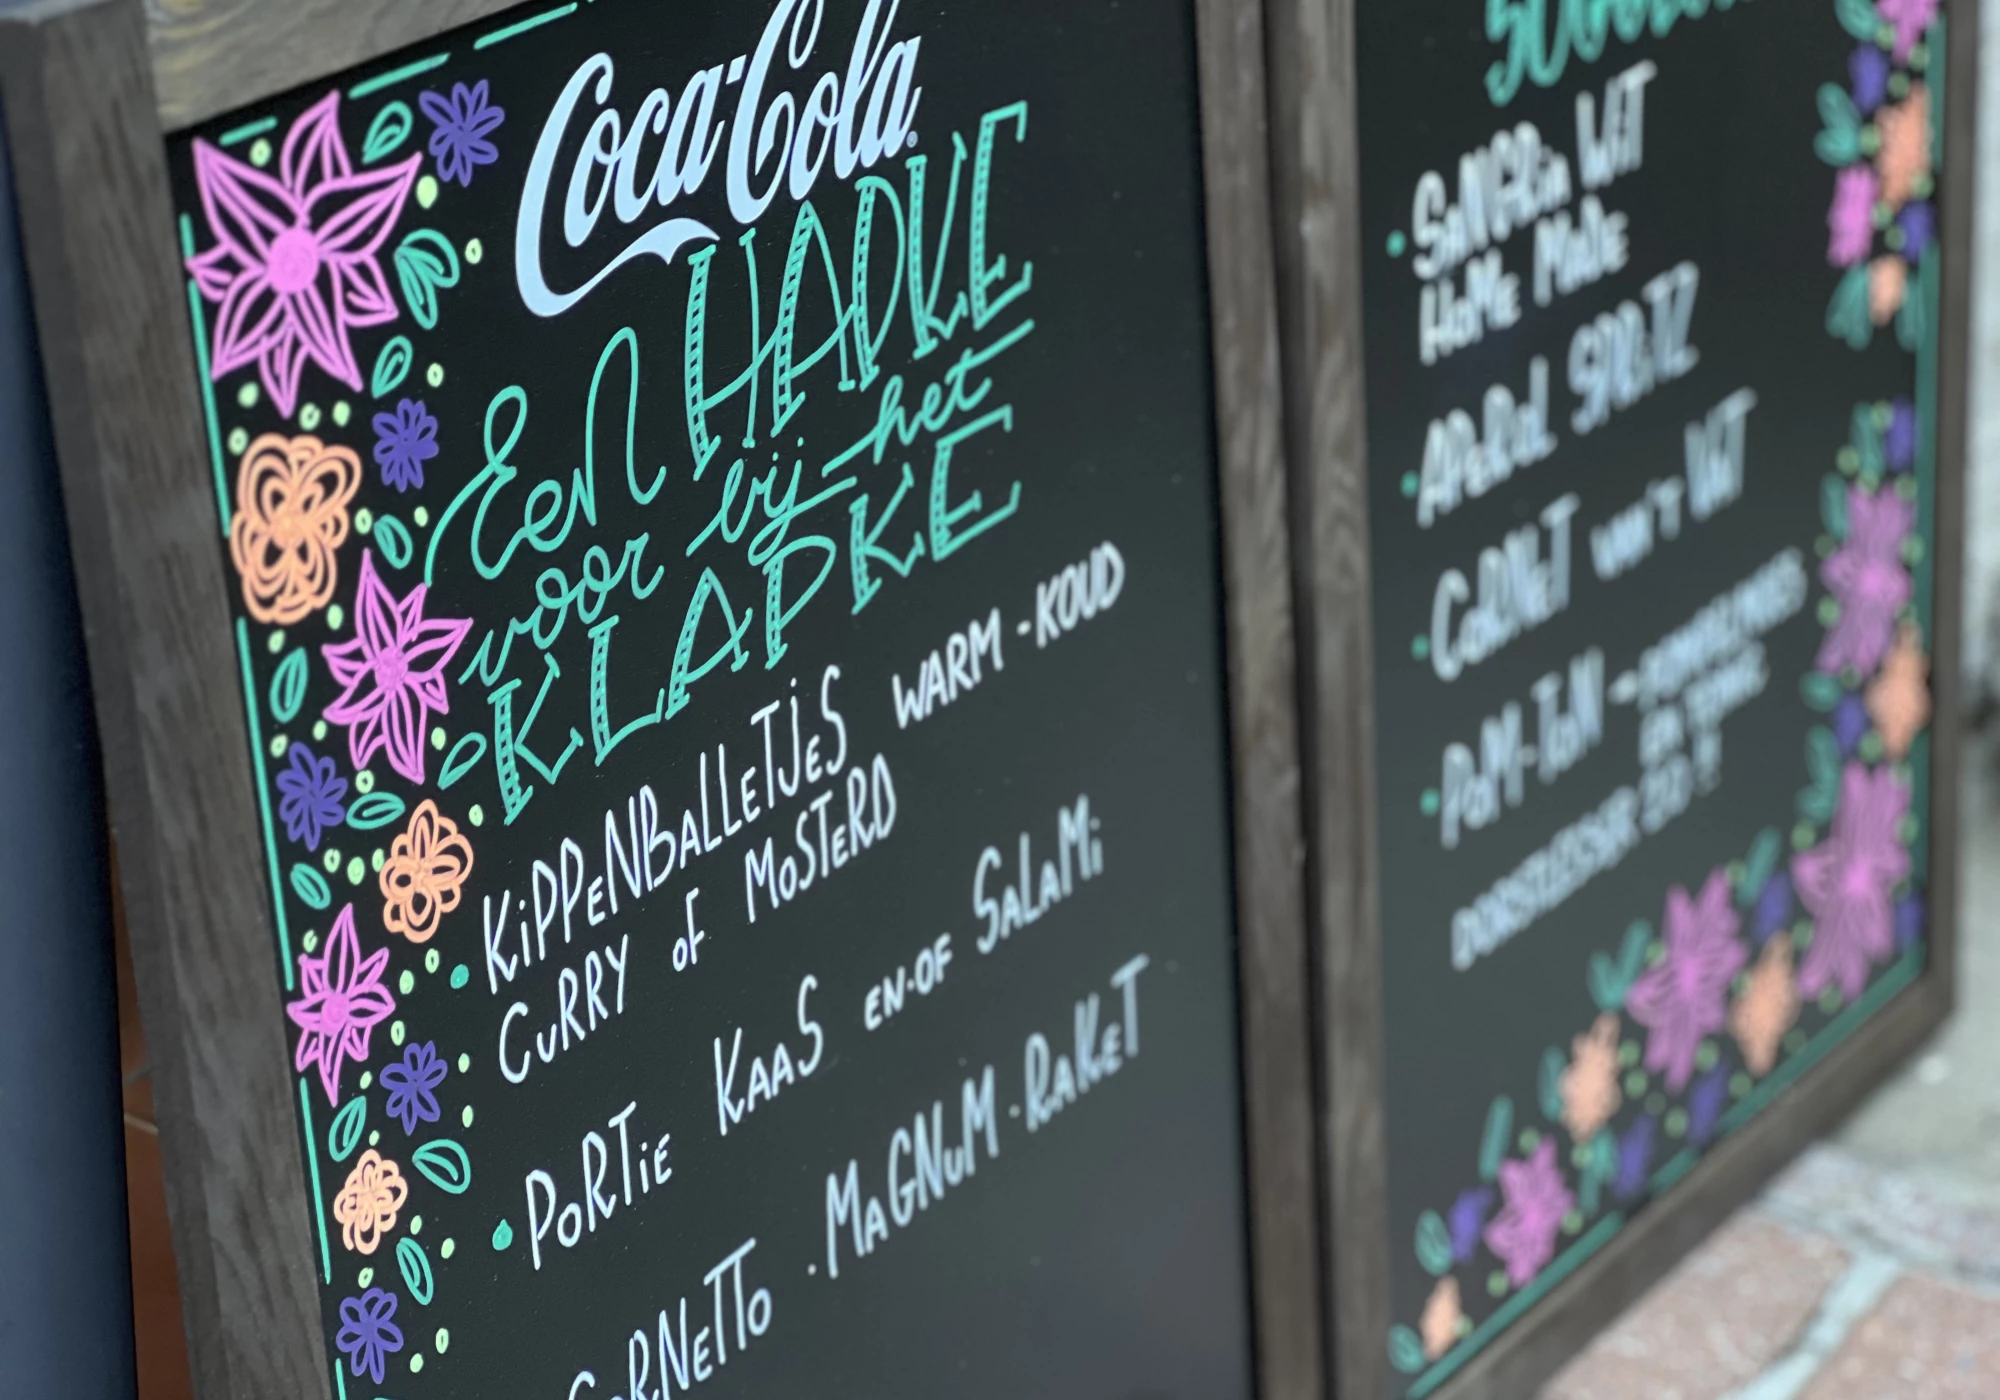 Coca-Cola
Een HAPKE
voor bij het
KLAPKE
KiPPeNBaLLeTJeS WARM - KOUD
CuRRY oF MoSTeRD
PoRTie KaaS EN-OF SaLaMi
CoRNeTTo . MaGNuM . RaKeT
SaNGRia WiT
HoMe MaDe
APeRoL SPRiTZ
CoRNeT van't VaT
PoM-ToN - POMPELMOES
EN TONIC
DORSTLESSER